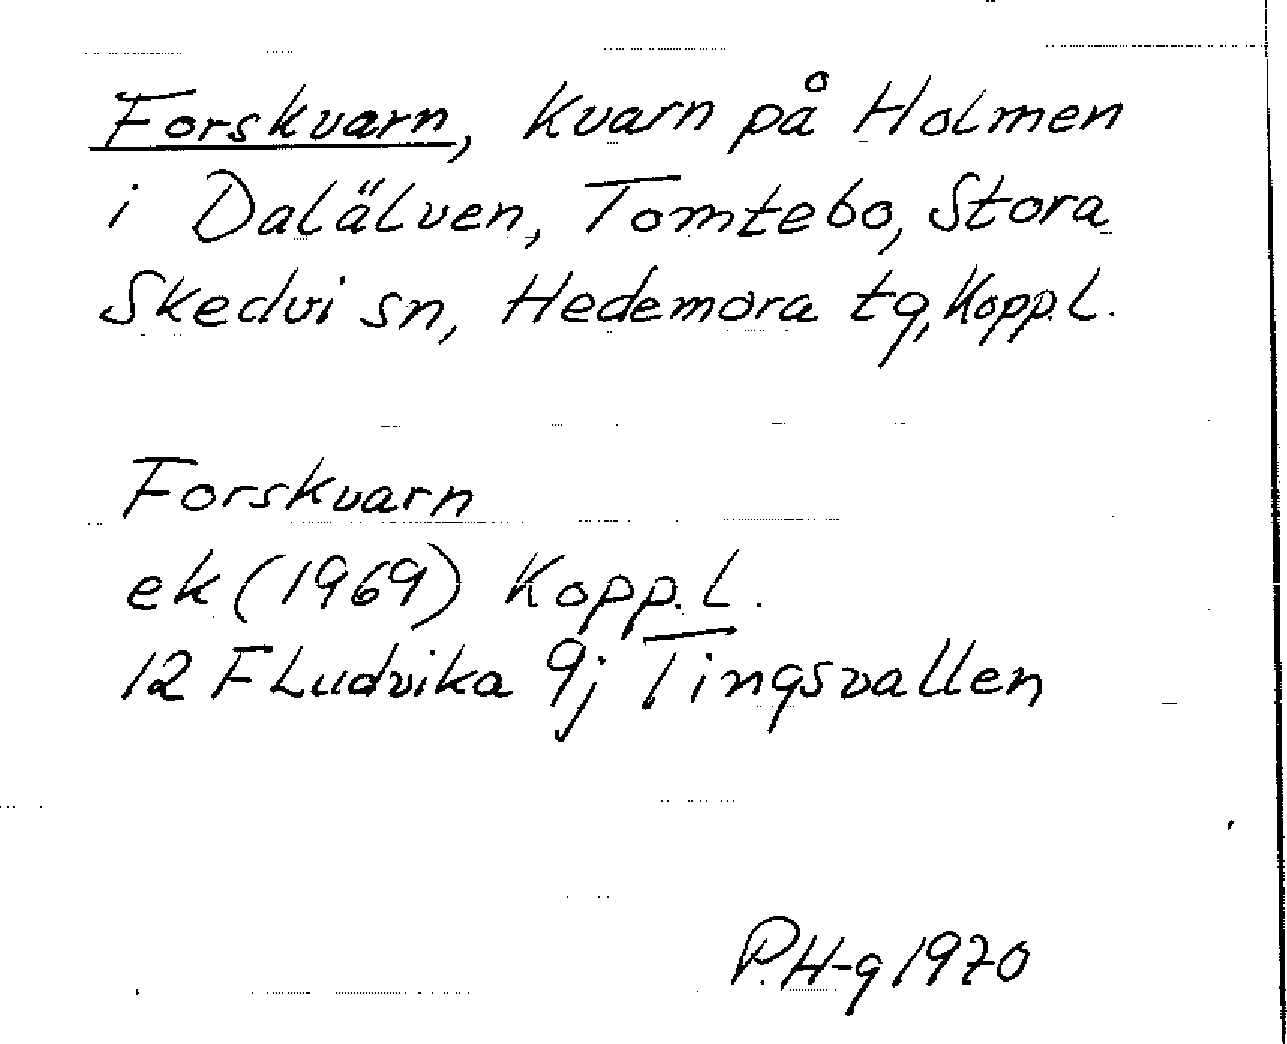 Forskvarn, Kvarn på Holmen
i Dalälven, Tomtebo, Stora
Skedvi sn, Hedemora tg, Kopp.L.
Forskvarn
ek (1969) Kopp.L.
12 F Ludvika 9j Tingsvallen
P.H-g 1970